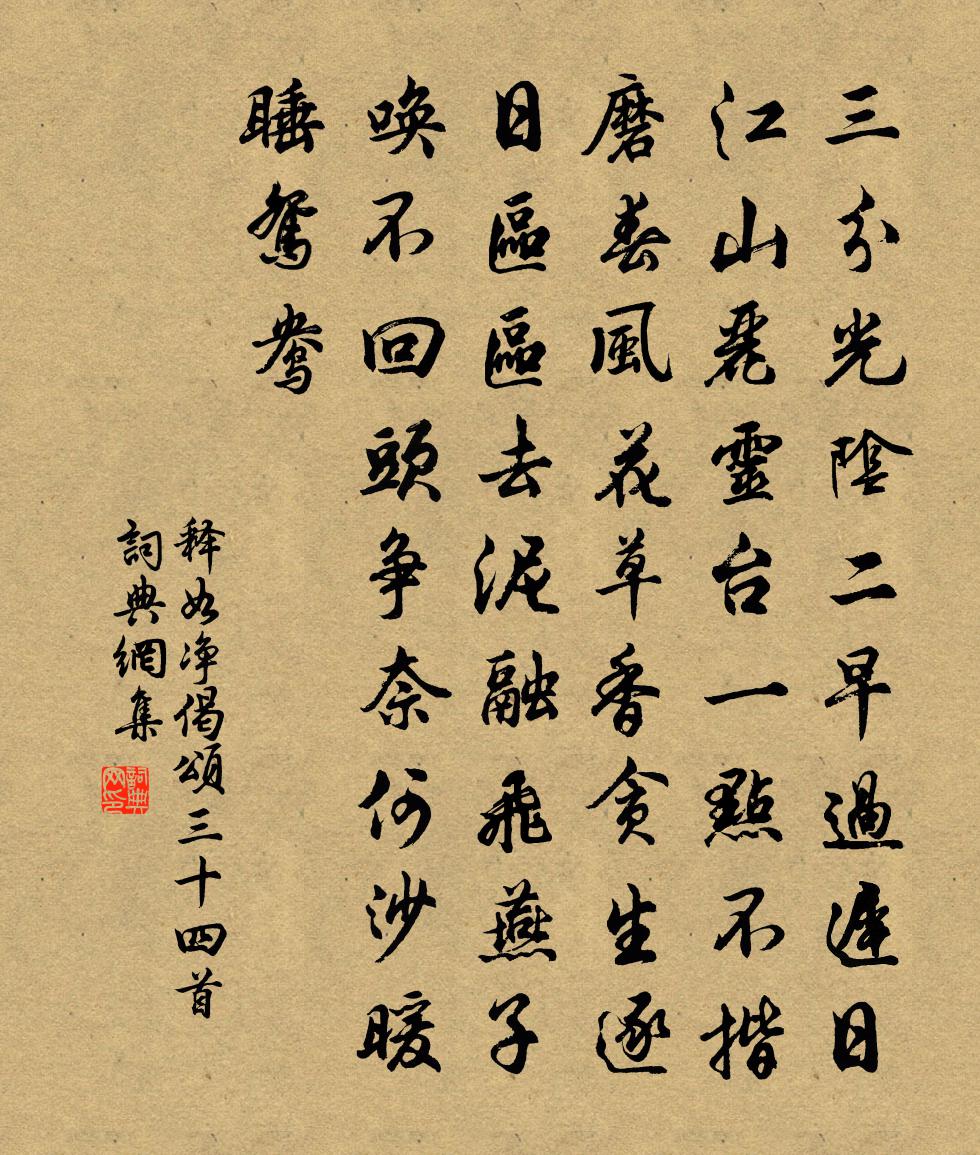 三分光陰二早過遲日
江山麗靈台一點不揩
磨春風花草香貪生逐
日區區去泥融飛燕子
喚不回頭爭奈何沙暖
睡鴛鴦
释如净偈頌三十四首
詞典網集
詞典
网印